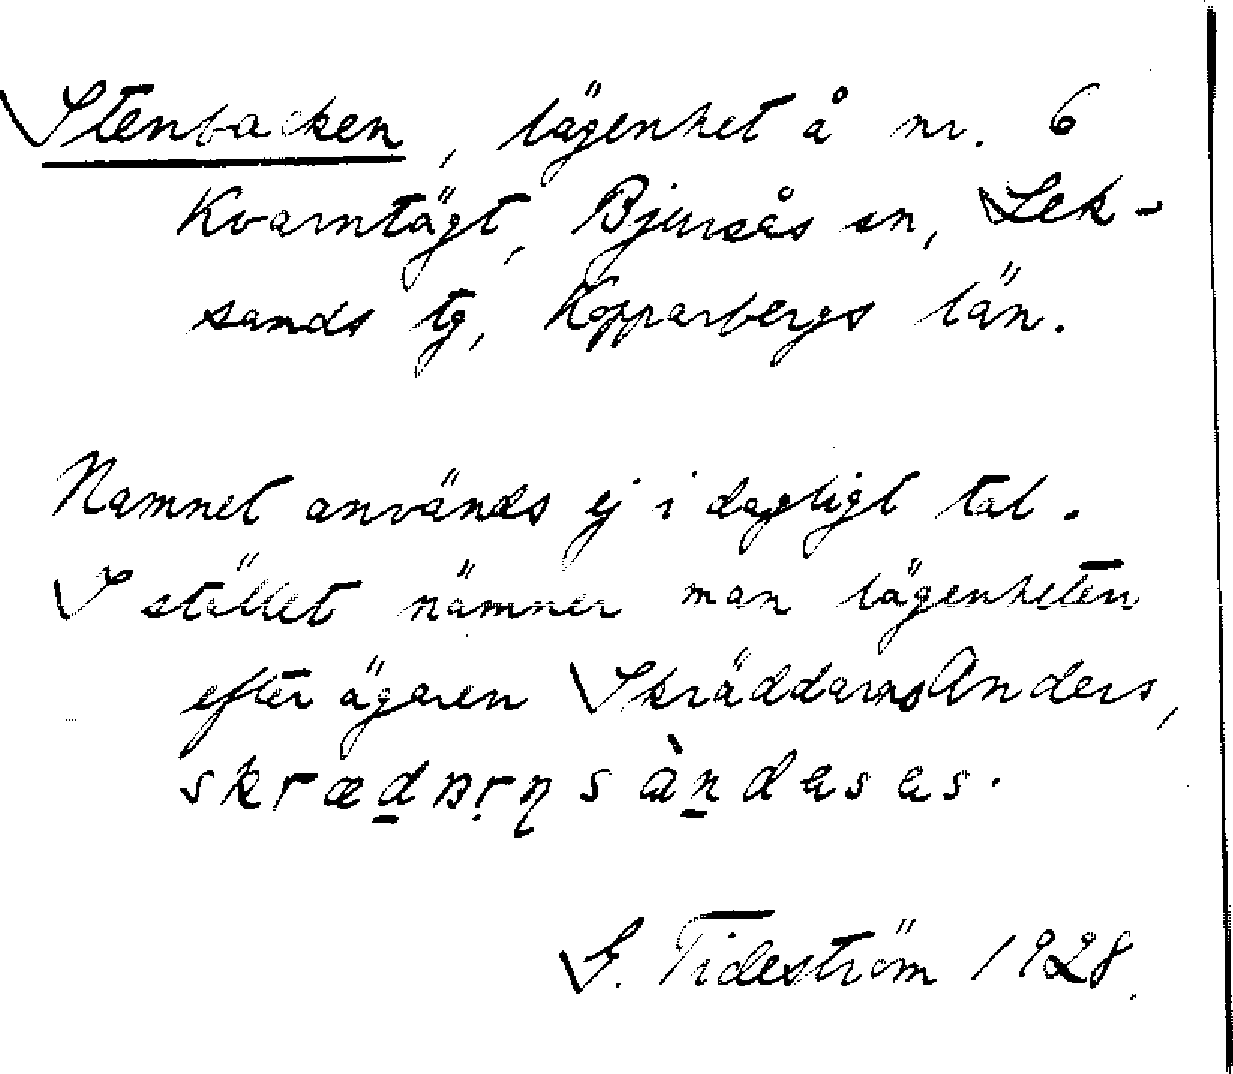 Stenbacken, lägenhet å nr. 6
Kvarntägt, Bjursås sn, Lek-
sands tg, Kopparbergs län.
Namnet används ej i dagligt tal.
I stället nämner man lägenheten
efter ägaren Skräddarns Anders,
G. Tideström 1928.